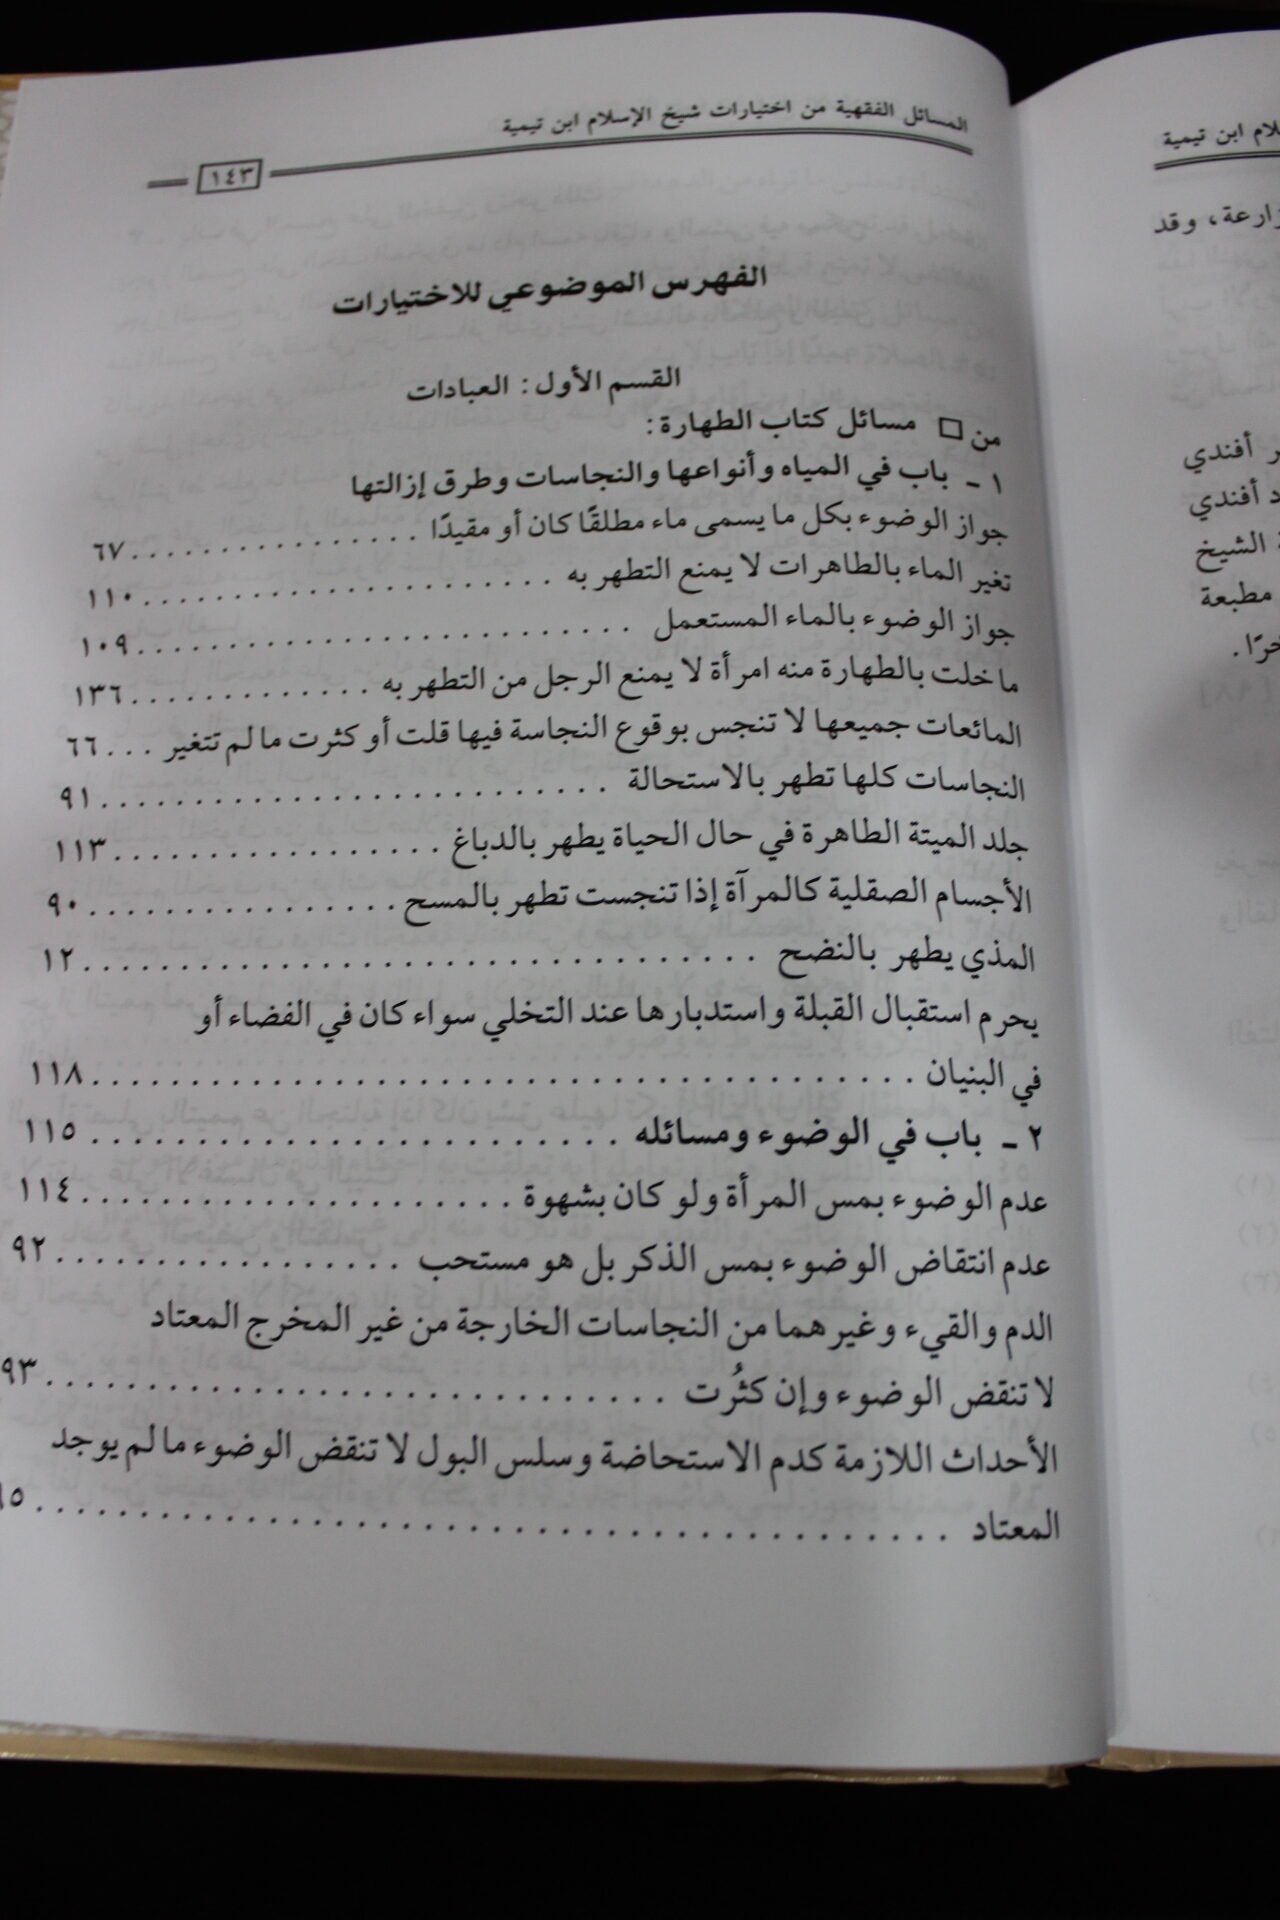 المسائل الفقهية من اختيارات شيخ الإسلام ابن تيمية
١٤٣
الفهرس الموضوعي للاختيارات
القسم الأول: العبادات
من □ مسائل كتاب الطهارة:
١ ـ باب في المياه وأنواعها والنجاسات وطرق إزالتها
جواز الوضوء بكل ما يسمى ماء مطلقًا كان أو مقيدًا ................ ٦٧
تغير الماء بالطاهرات لا يمنع التطهر به ...................... ١١٠
جواز الوضوء بالماء المستعمل .......................... ١٠٩
ما خلت بالطهارة منه امرأة لا يمنع الرجل من التطهر به ............. ١٣٦
المائعات جميعها لا تنجس بوقوع النجاسة فيها قلت أو كثرت ما لم تتغير ... ٦٦
النجاسات كلها تطهر بالاستحالة .......................... ٩١
جلد الميتة الطاهرة في حال الحياة يطهر بالدباغ ................. ١١٣
الأجسام الصقلية كالمرآة إذا تنجست تطهر بالمسح ................ ٩٠
المذي يطهر بالنضح .................................. ١٢
يحرم استقبال القبلة واستدبارها عند التخلي سواء كان في الفضاء أو
في البنيان ........................................ ١١٨
٢ ـ باب في الوضوء ومسائله .......................... ١١٥
عدم الوضوء بمس المرأة ولو كان بشهوة ..................... ١١٤
عدم انتقاض الوضوء بمس الذكر بل هو مستحب ................. ٩٢
الدم والقيء وغيرهما من النجاسات الخارجة من غير المخرج المعتاد
لا تنقض الوضوء وإن كثُرت .............................. ٩٣
الأحداث اللازمة كدم الاستحاضة وسلس البول لا تنقض الوضوء ما لم يوجد
المعتاد ..........................................
سلام ابن تيمية
زارعة، وقد
ر أفندي
د أفندي
ة الشيخ
مطبعة
حرًا.